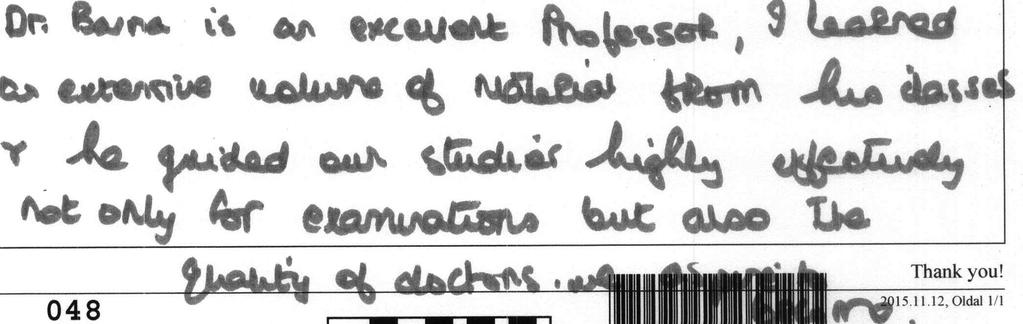 Dr. Barna is an excellent Professor, I learned
an extensive volume of material from his classes
& he guided our studies highly effectively
not only for examinations but also the
quality of doctors. we
Thank you!
048
2015.11.12, Oldal 1/1